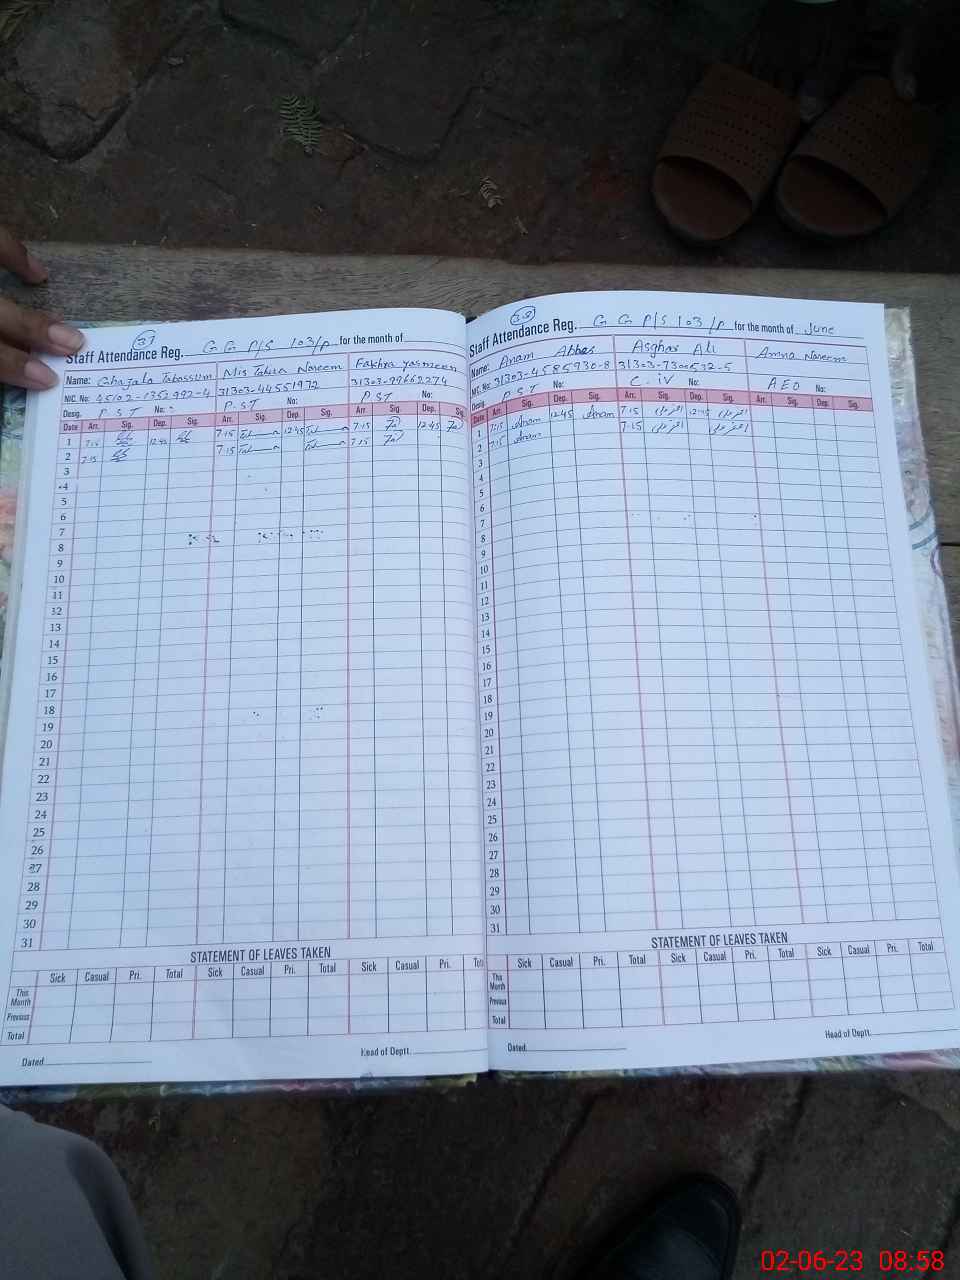 37
Staff Attendance Reg. G G P/S 103/P for the month of
Name: Ghazala Tabassum Mis Tahira Nareem Fakhra Yasmeen
NIC. No: 45102-1352992-4 31303-44551972 31303-99662274
Desig. P S T No: P.S.T No: P S T No:
Date Arr. Sig. Dep. Sig. Arr. Sig. Dep. Sig. Arr. Sig. Dep. Sig.
1 7:15 12:45 7:15 12:45 7:15 12:45
2 7:15 7:15 7:15
3
4
5
6
7
8
9
10
11
12
13
14
15
16
17
18
19
20
21
22
23
24
25
26
27
28
29
30
31
STATEMENT OF LEAVES TAKEN
Sick Casual Pri. Total Sick Casual Pri. Total Sick Casual Pri.
This Month
Previous
Total
Dated
Head of Deptt.
38
Staff Attendance Reg. G G P/S 103/P for the month of June
Name: Anam Abbas Asghar Ali Amna Nareem
NIC. No: 31303-4585930-8 31303-7300532-5
Desig. P S T No: C.iV No: A E O No:
Date Arr. Sig. Dep. Sig. Arr. Sig. Dep. Sig. Arr. Sig. Dep. Sig.
1 7:15 Anam 12:45 Anam 7:15 12:45
2 7:15 Anam 7:15
3
4
5
6
7
8
9
10
11
12
13
14
15
16
17
18
19
20
21
22
23
24
25
26
27
28
29
30
31
STATEMENT OF LEAVES TAKEN
Sick Casual Pri. Total Sick Casual Pri. Total Sick Casual Pri. Total
This Month
Previous
Total
Dated
Head of Deptt.
02-06-23 08:58